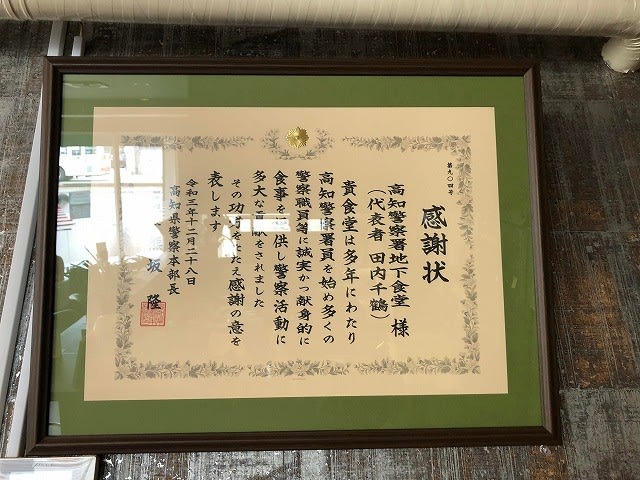 第九〇四号
感謝状
高知警察署地下食堂 様
（代表者 田内千鶴）
貴食堂は多年にわたり
高知警察署員を始め多くの
警察職員等に誠実かつ献身的に
食事を提供し警察活動に
多大な貢献をされました
その功労をたたえ感謝の意を
表します
令和三年十二月二十八日
高知県警察本部長
熊坂 隆